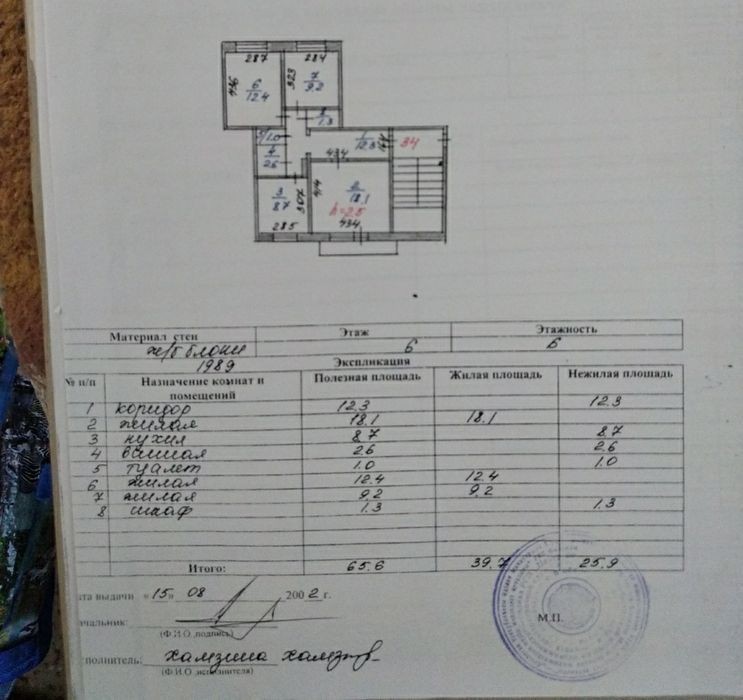 287
284
6
12.4
323
7
9.2
8
1.3
5/1.0
4
2.6
1
12.3
434
34
3
8.7
307
285
414
2
18.1
h=2.5
434
Материал стен Этаж Этажность
ж/б блоки 6 6
1989
Экспликация
№ п/п Назначение комнат и помещений Полезная площадь Жилая площадь Нежилая площадь
1 коридор 12.3 12.3
2 жилая 18.1 18.1
3 кухня 8.7 8.7
4 ванная 2.6 2.6
5 туалет 1.0 1.0
6 жилая 12.4 12.4
7 жилая 9.2 9.2
8 шкаф 1.3 1.3
Итого: 65.6 39.7 25.9
ата выдачи «15» 08 2002 г.
чальник:
(Ф.И.О.,подпись)
М.П.
полнитель: Хамзина
(Ф.И.О.,исполнителя)